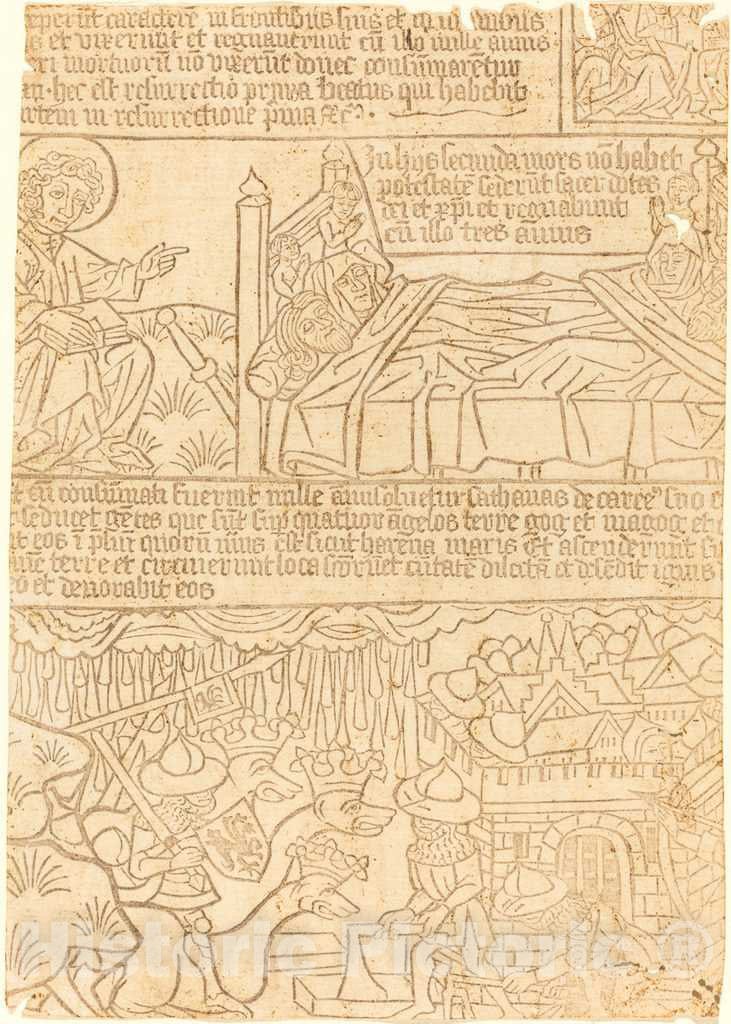 eperūt caracterē in frontibus suis et in manibus
s et vixerunt et regnaverunt cū illo mille annis
eri mortuorū nō vixerūt donec consumaretur
hec est resurrectio prima beatus qui habebit
artem in resurrectione prima
In hiis secunda mors nō habet
potestatē sed erūt sacerdotes
dei et xp̄i et regnabunt
cū illo annis
t cū consumati fuerint mille anni solvetur sathanas de carcere suo
seducet gētes que sūt sup quatuor āgelos terre gog et magog et
it eos ī quorū est sicut harena maris Et ascenderunt
terre et circuierunt loca et civitatē et descēdit ignis
eo et devorabit eos
Historic Pictoric ®